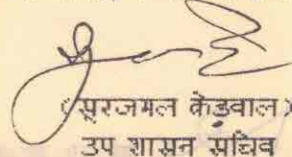 (सूरजमल केड़वाल)
उप शासन सचिव